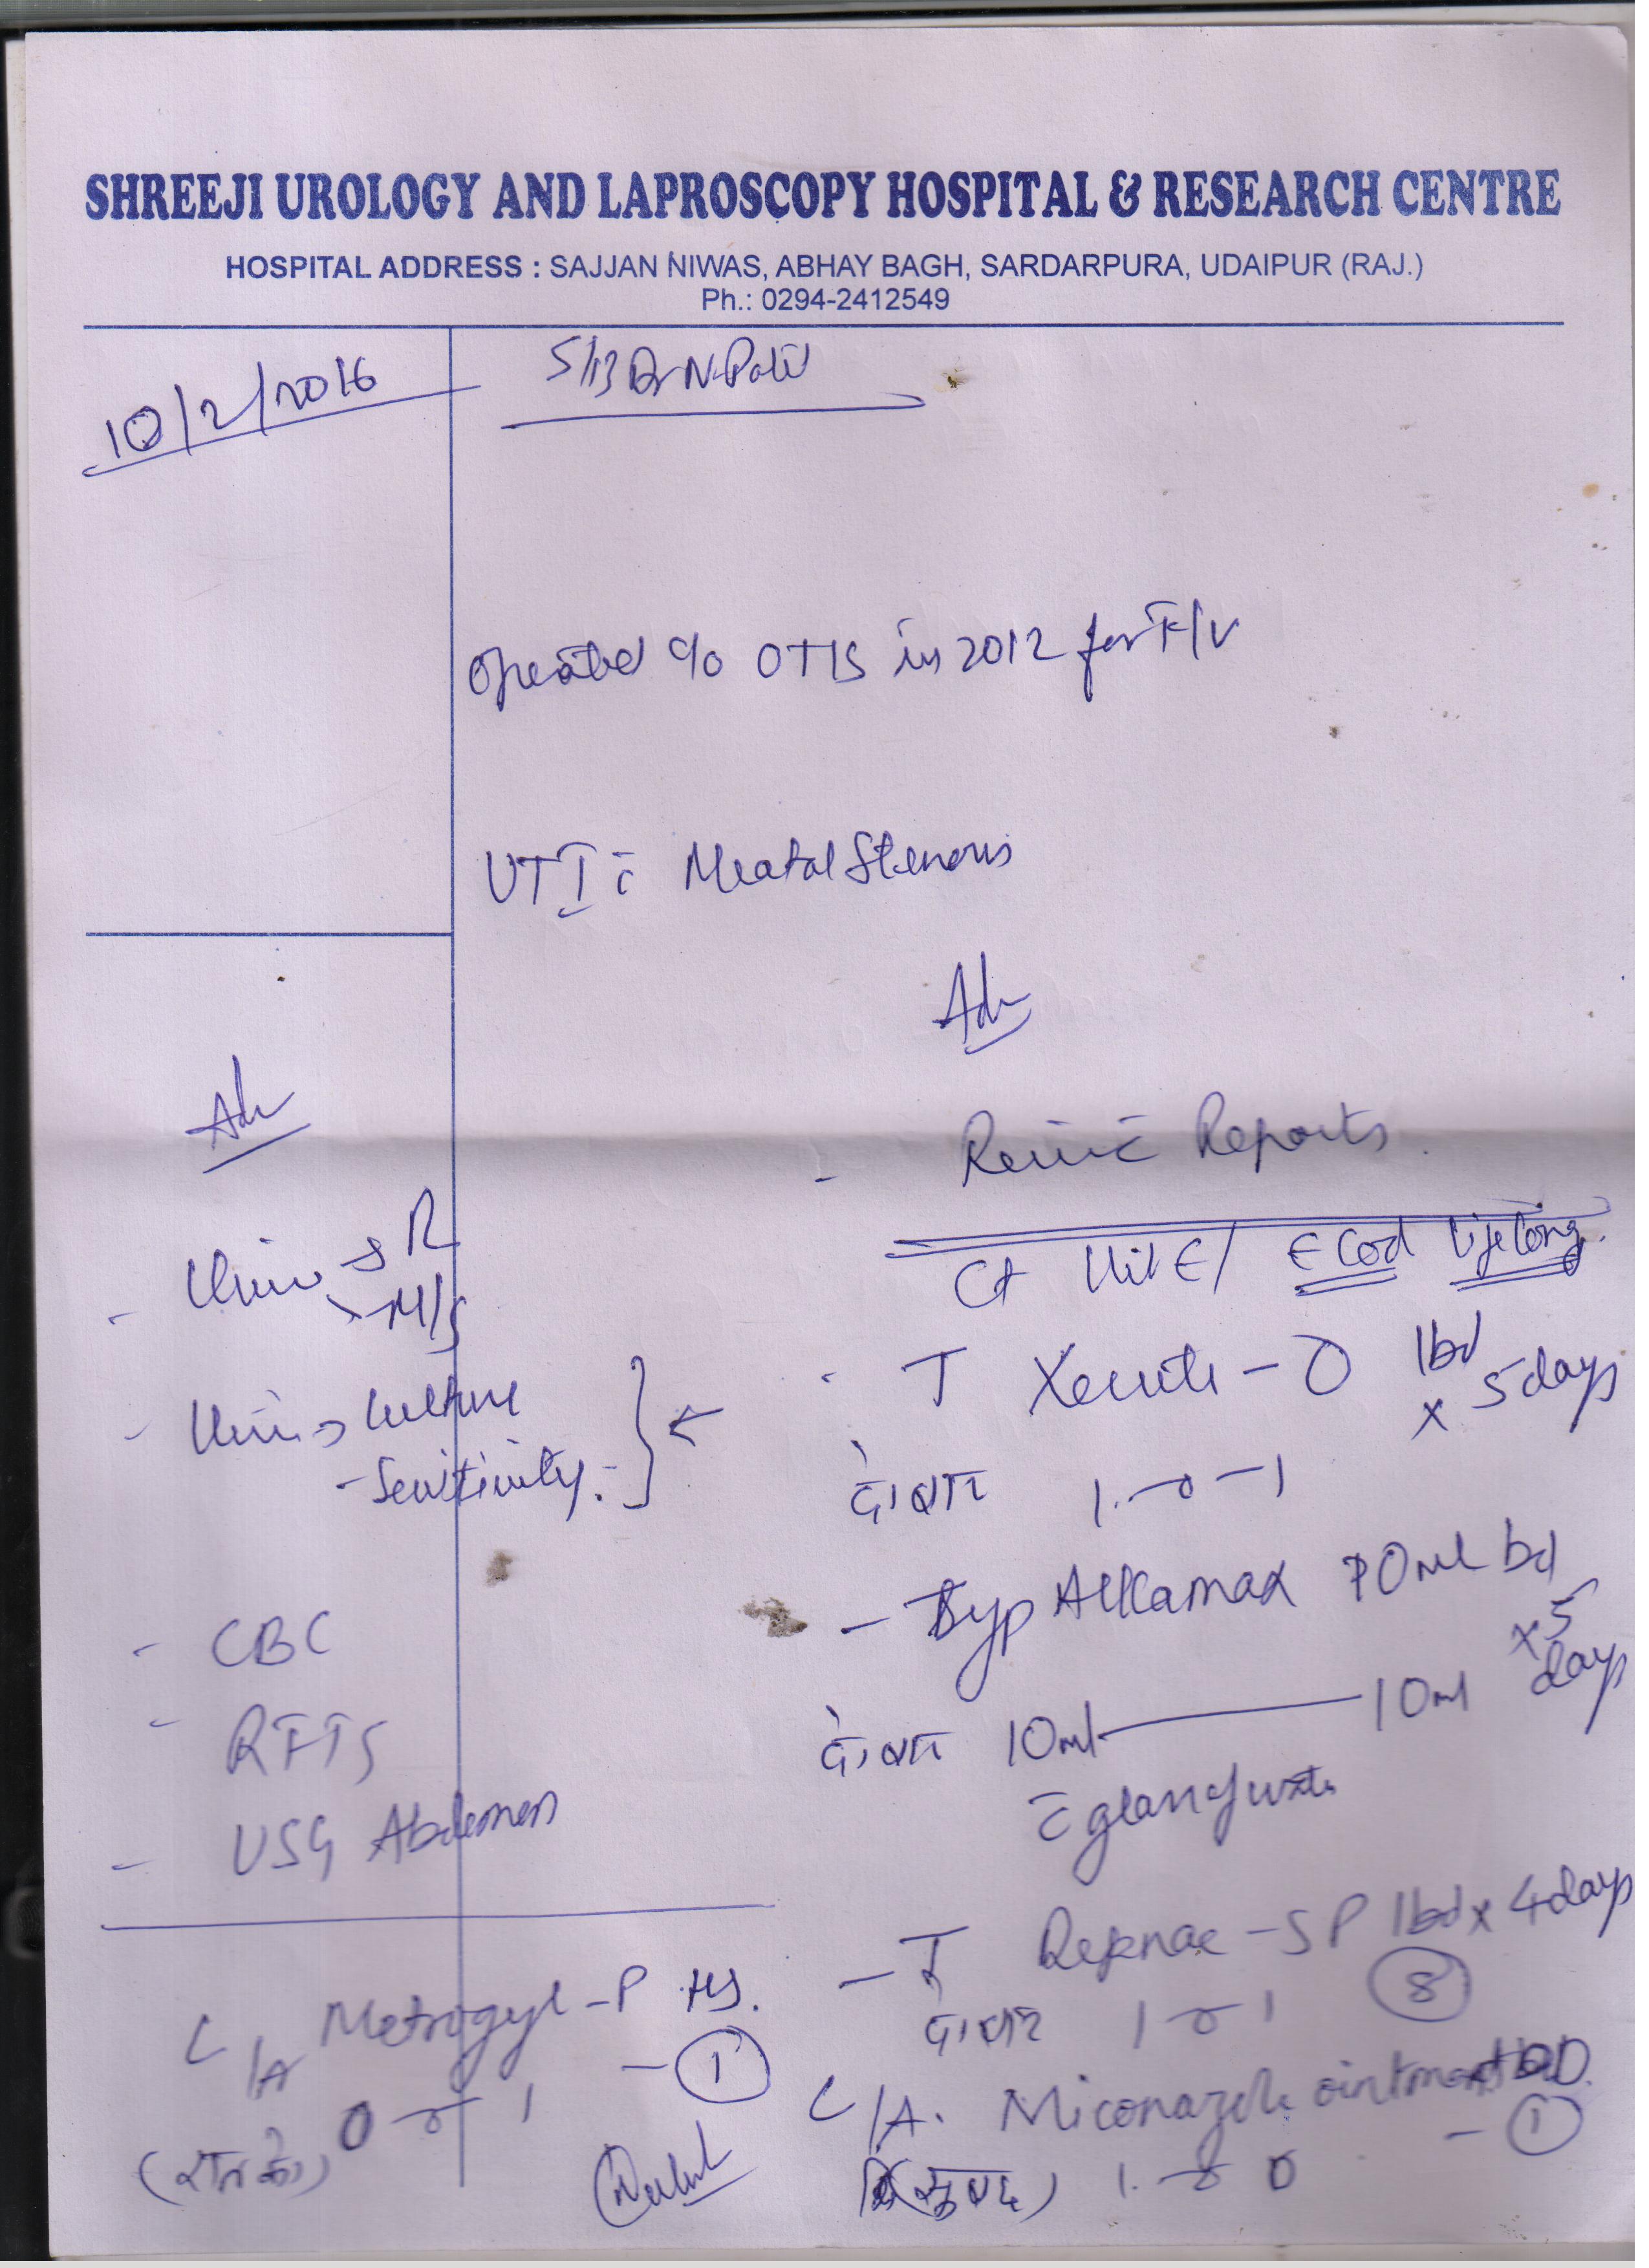 SHREEJI UROLOGY AND LAPROSCOPY HOSPITAL & RESEARCH CENTRE
HOSPITAL ADDRESS : SAJJAN NIWAS, ABHAY BAGH, SARDARPURA, UDAIPUR (RAJ.)
Ph.: 0294-2412549
10/2/2016
S/B Dr N. Patil
Operated c/o OTIS in 2012 for
UTI c̄ Meatal Stenosis
Adv
- Reports
Ct Lifelong.
- T - O 1bd x 5 days
दो बार 1-0-1
- Syp Alkamax 10ml bd x 5 days
दो बार 10ml — 10ml
c̄ glass of water
- T -SP 1bd x 4 days
दो बार 1 0 1 (8)
L/A. Miconazole ointment OD.
- (1)
(सुबह) 1-0-0
Adv
- Urine R
M/S
- Urine Culture
- Sensitivity.
- CBC
- RFTS
- USG Abdomen
L/A Metrogyl-P HS.
- (1)
0-0-1
(रात को)